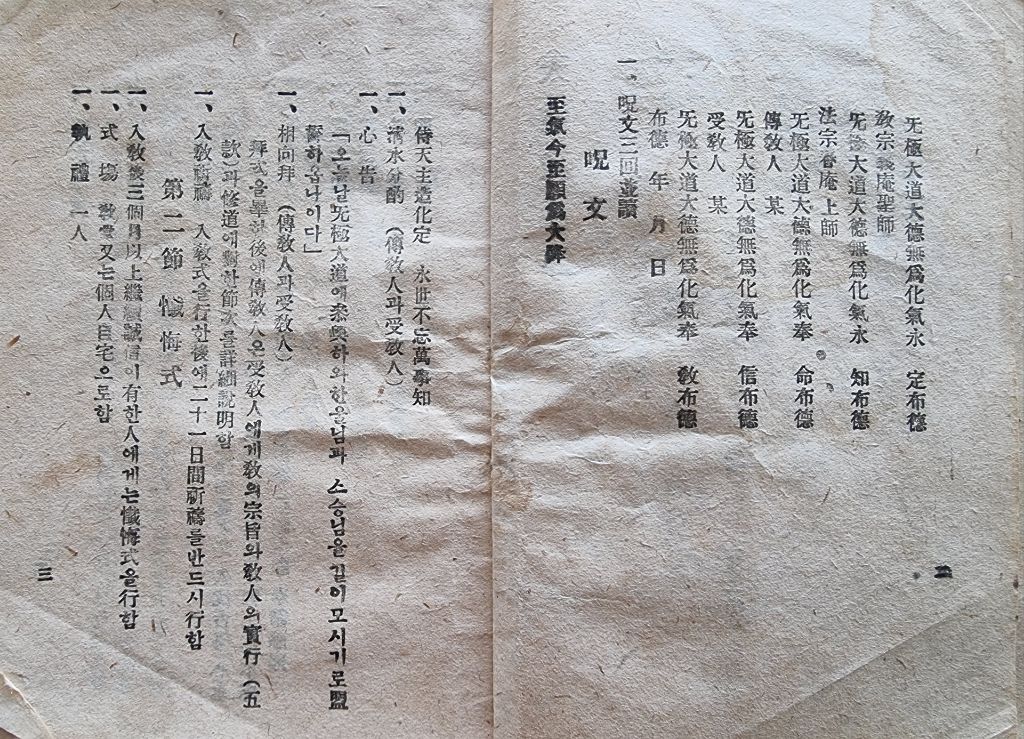 无極大道大德無爲化氣永 定布德
敎宗義庵聖師
无極大道大德無爲化氣永 知布德
法宗春庵上師
无極大道大德無爲化氣奉 命布德
傳敎人 某
无極大道大德無爲化氣奉 信布德
受敎人 某
无極大道大德無爲化氣奉 敎布德
布德 年 月 日
一、呪文三回並讀
呪文
至氣今至願爲大降
二
侍天主造化定 永世不忘萬事知
一、淸水分酌 (傳敎人과受敎人)
一、心告
「오늘날无極大道에參與하와한울님과 스승님을길이모시기로盟
誓하옵나이다」
一、相向拜 (傳敎人과受敎人)
拜式을畢한後에傳敎人은受敎人에게敎의宗旨와敎人의實行(五
款과修道에對한節次를詳細說明함
一、入敎祈禱 入敎式을行한後에二十一日間祈禱를반드시行함
第二節 懺悔式
一、入敎後三個月以上繼續誠信이有한人에게는懺悔式을行함
一、式場 敎堂又는個人自宅으로함
一、執禮 一人
三